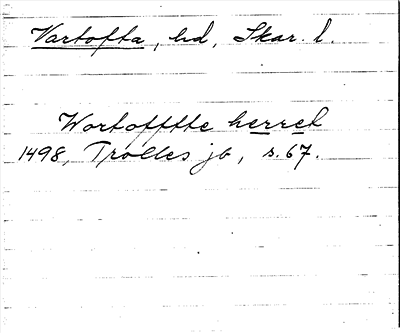 Vartofta, hd, Skar. l.
Wortofftte herret
1498, Trolles jb, s. 67.